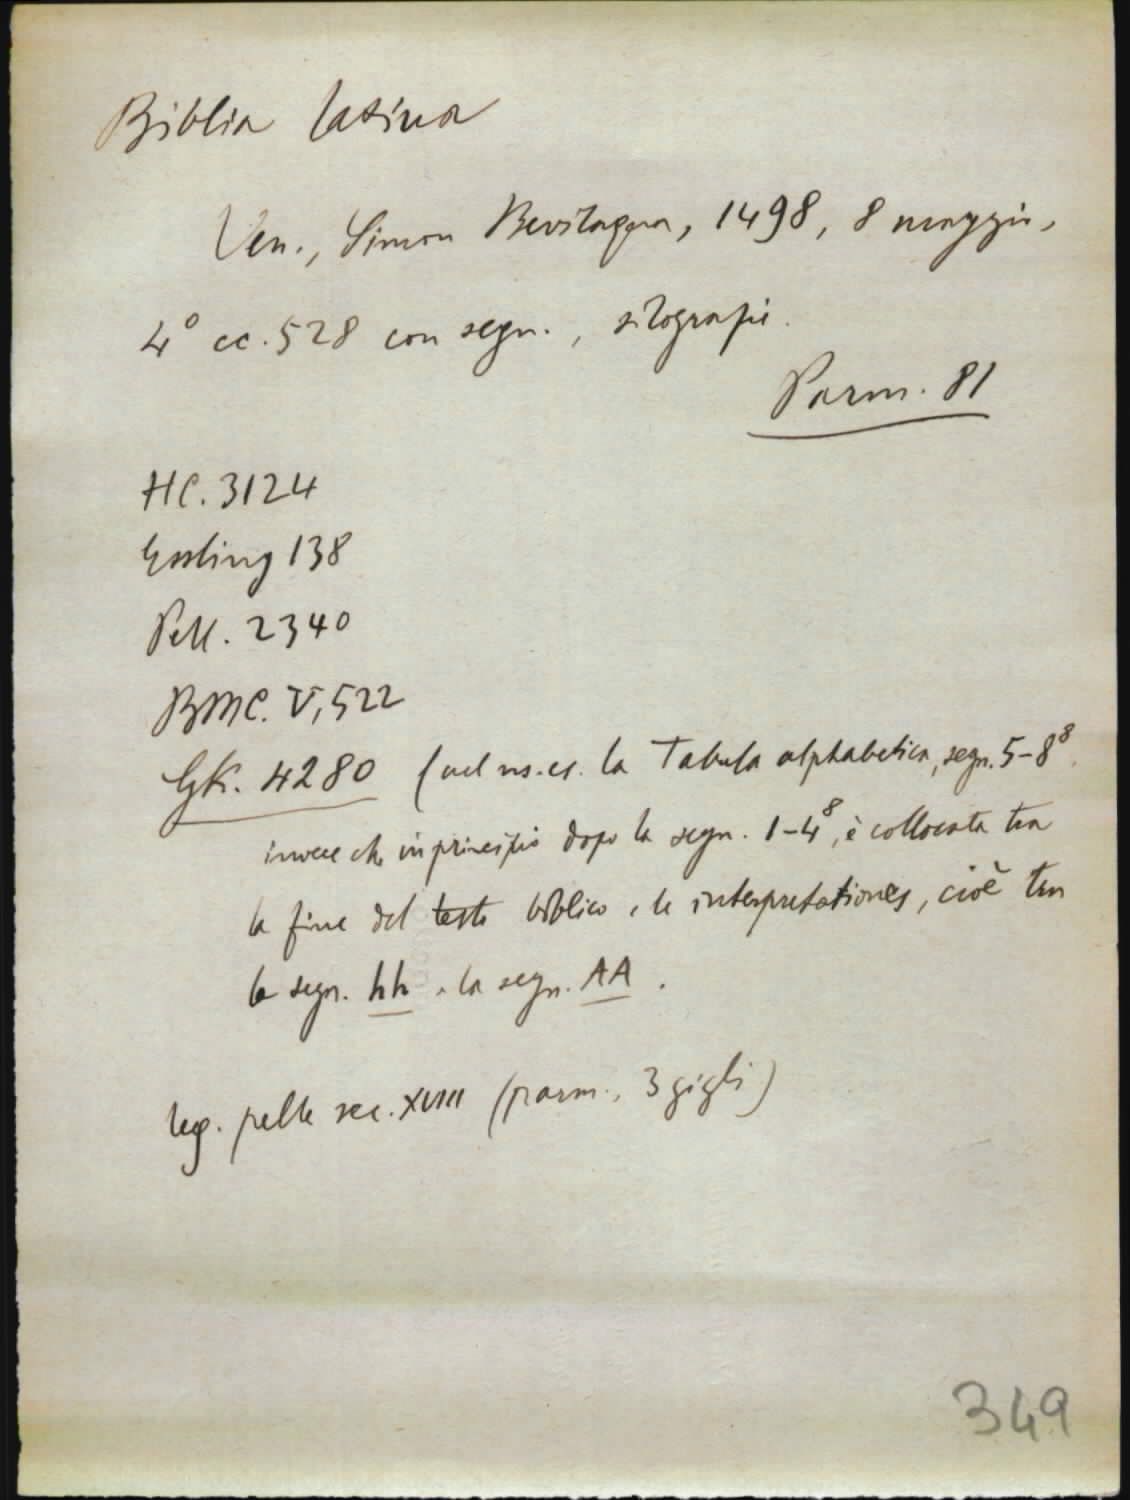 Biblia latina
Ven., Simon Bevilaqua, 1498, 8 maggio,
4° cc. 528 con segn., silografie.
Parm. 81
HC. 3124
Essling 138
Pell. 2340
BMC. V, 522
GK. 4280 (nel ns. es. la Tabula alphabetica, segn. 5-8⁸.
invece che in principio dopo la segn. 1-4⁸, è collocata tra
la fine del testo biblico e le interpretationes, cioè tra
la segn. hh e la segn. AA.
leg. pelle sec. XVIII (parm., 3 gigli)
349